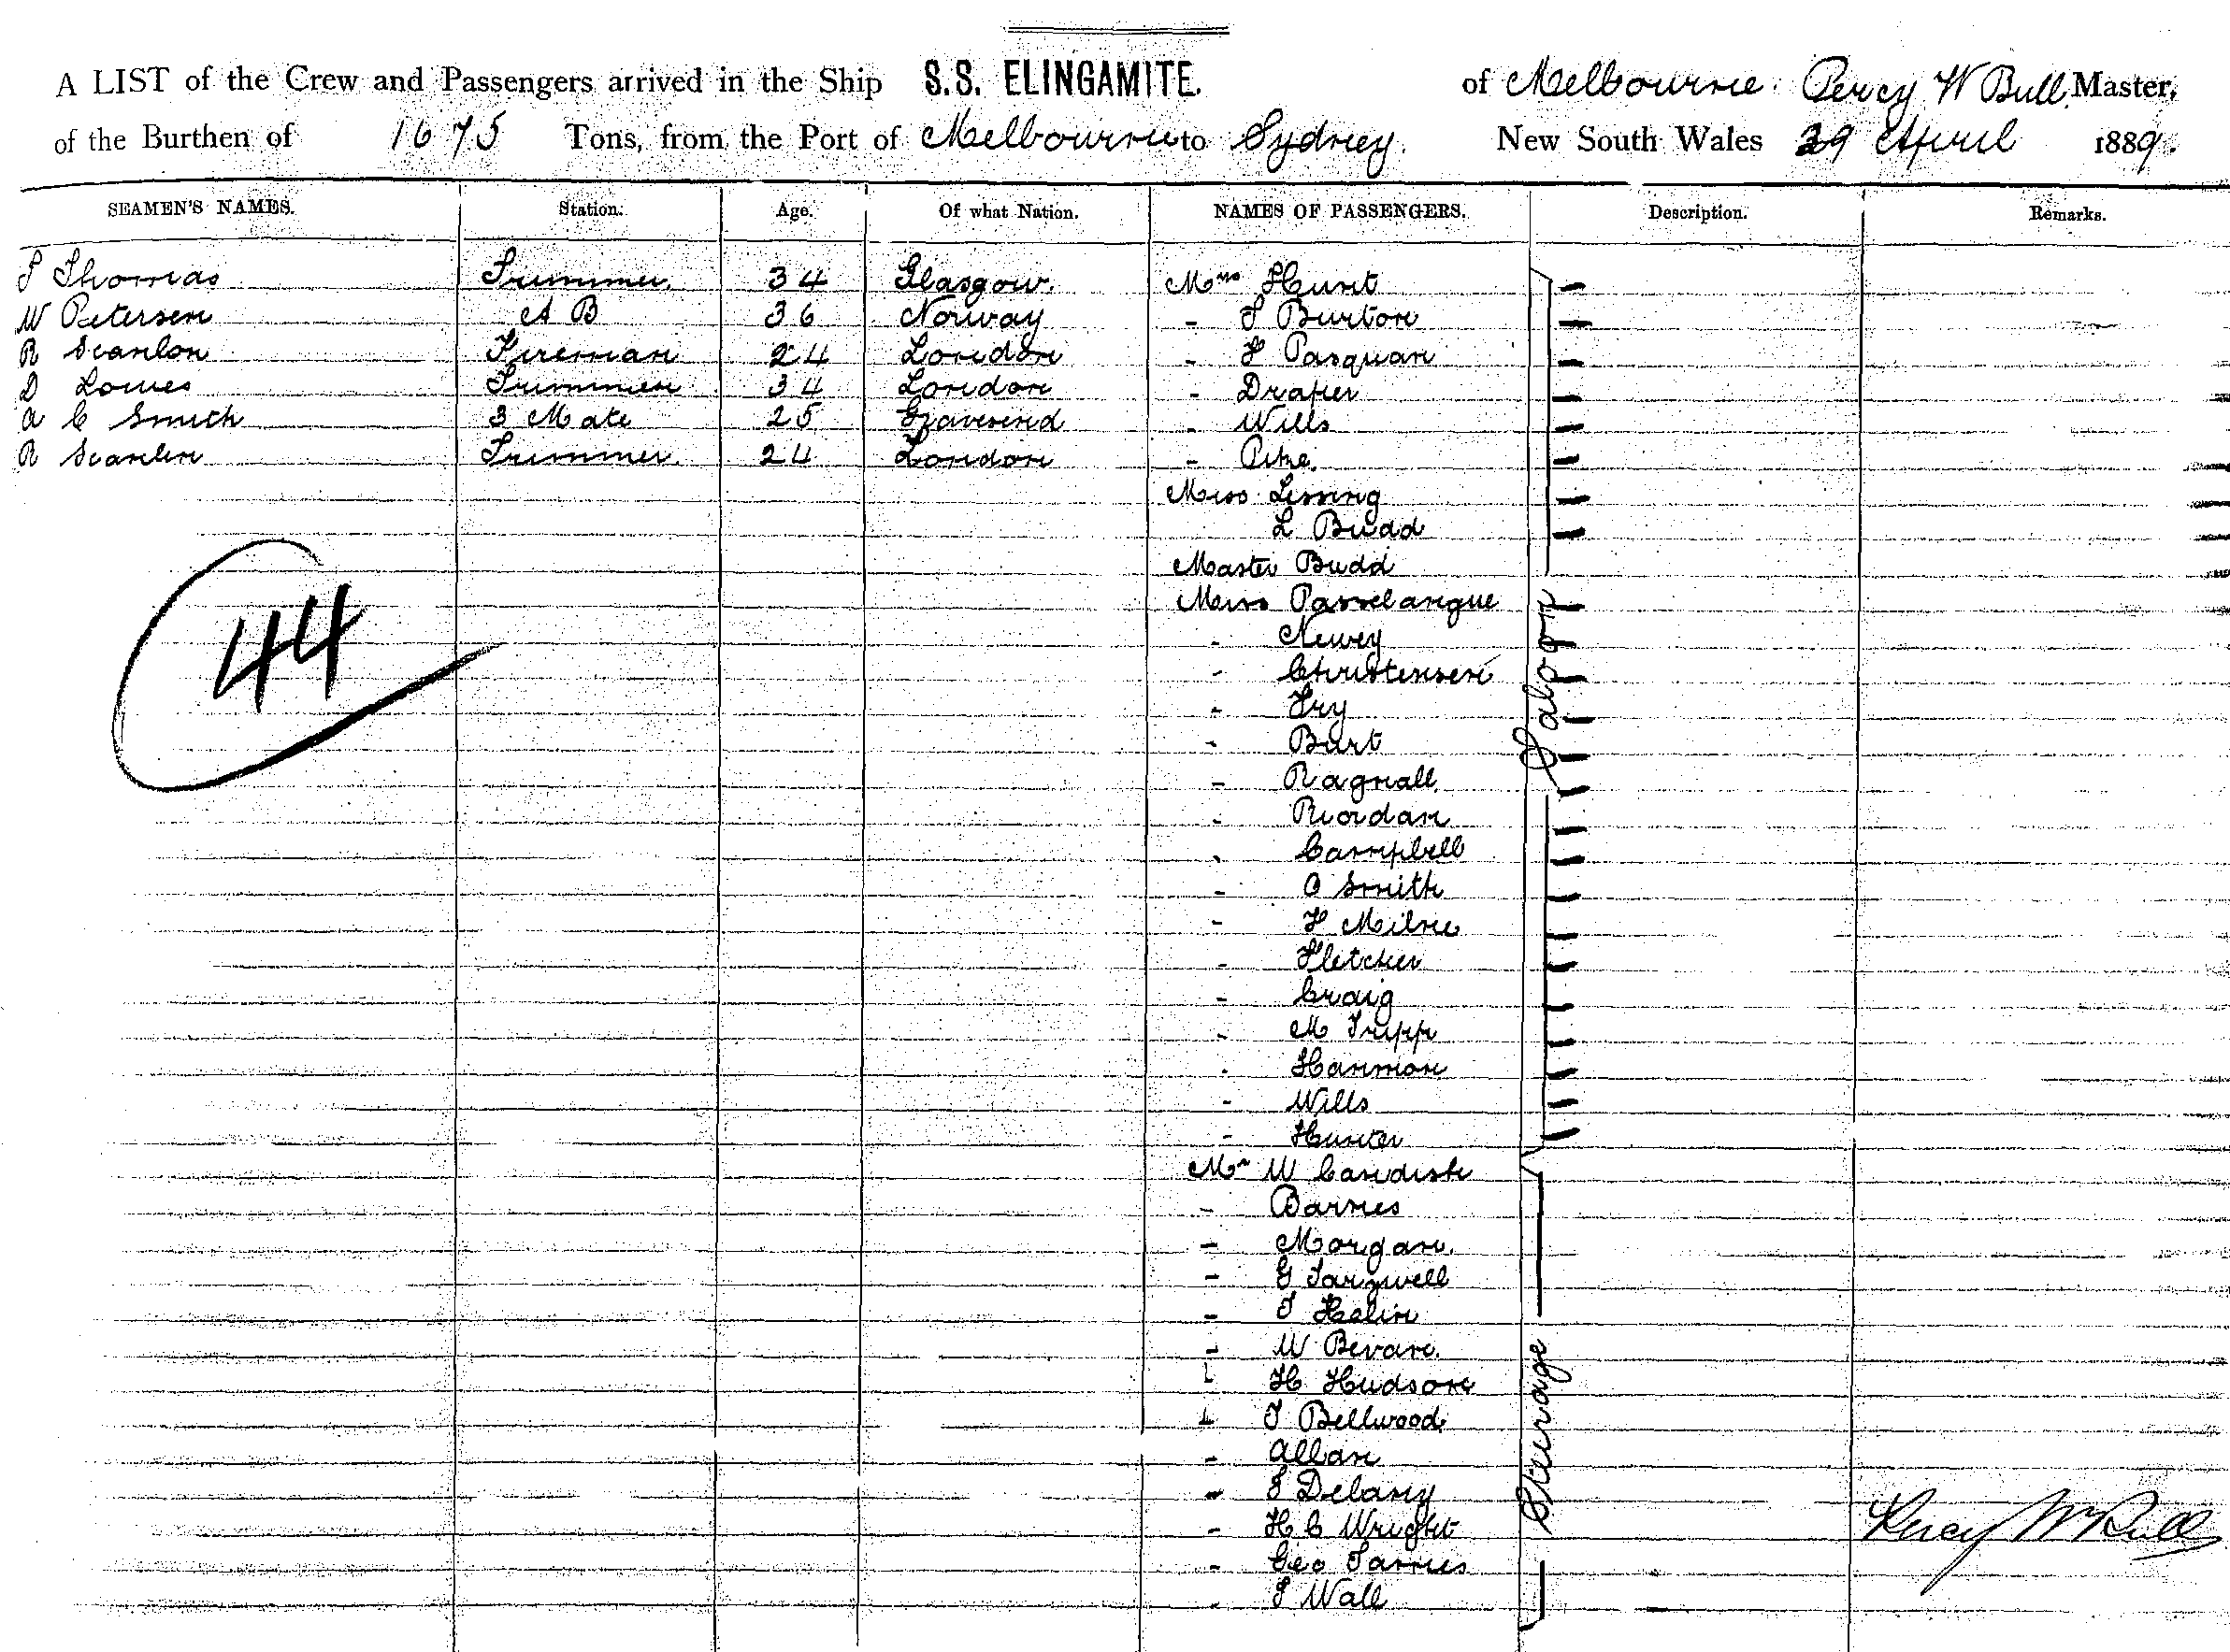 A LIST of the Crew and Passengers arrived in the Ship S.S. ELINGAMITE. of Melbourne. Percy W Bull Master,
of the Burthen of 1675 Tons, from the Port of Melbourne to Sydney. New South Wales 29 April 1889.
SEAMEN'S NAMES. Station. Age. Of what Nation. NAMES OF PASSENGERS. Description. Remarks.
Thomas Trimmer. 34 Glasgow. Mrs Hunt
W Petersen A B 36 Norway - Burton
R Scanlon Fireman 24 London - Pasquan
D Lowes Trimmer 34 London - Draper
A C Smith 3 Mate 25 Gravesend - Wills
R Scanlen Trimmer. 24 London -
Miss
L Budd
Master Budd
Messrs
- Newey
- Christensen
- Fry
- Burt
- Ragnall
- Riordan
- Campbell
- Smith
- Milne
- Fletcher
- Craig
- M Tripp
- Hanmon
- Wills
- Hunter
Saloon
Mr W Candish
- Barnes
- Morgan.
- G Targwell
- Helin
- W Bevan.
- H Hudson
- Bellwood
- Allan
- Delany
- H C Wright
- Geo James
- Wall
Steerage
44
Percy W Bull